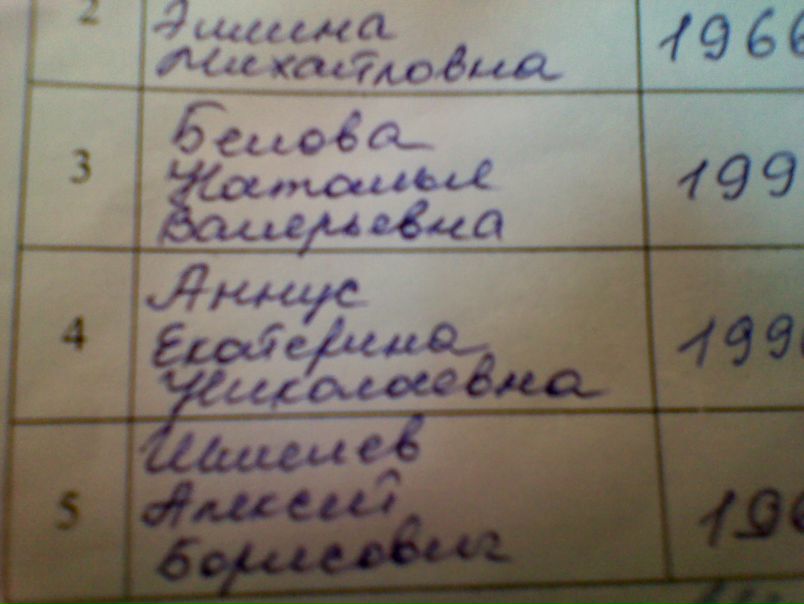 2
Михайловна
1966
3
Белова
Наталья
Валерьевна
199
4
Аннус
Екатерина
Николаевна
199
5
Шмелев
Алексей
Борисович
19